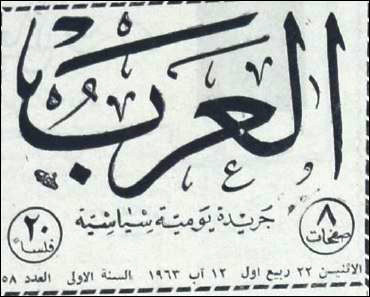 العرب
٨ صفحات
جريدة يومية سياسية
٢٠ فلساً
الاثنين ٢٢ ربيع اول ١٢ آب ١٩٦٣ السنة الاولى العدد ٥٨